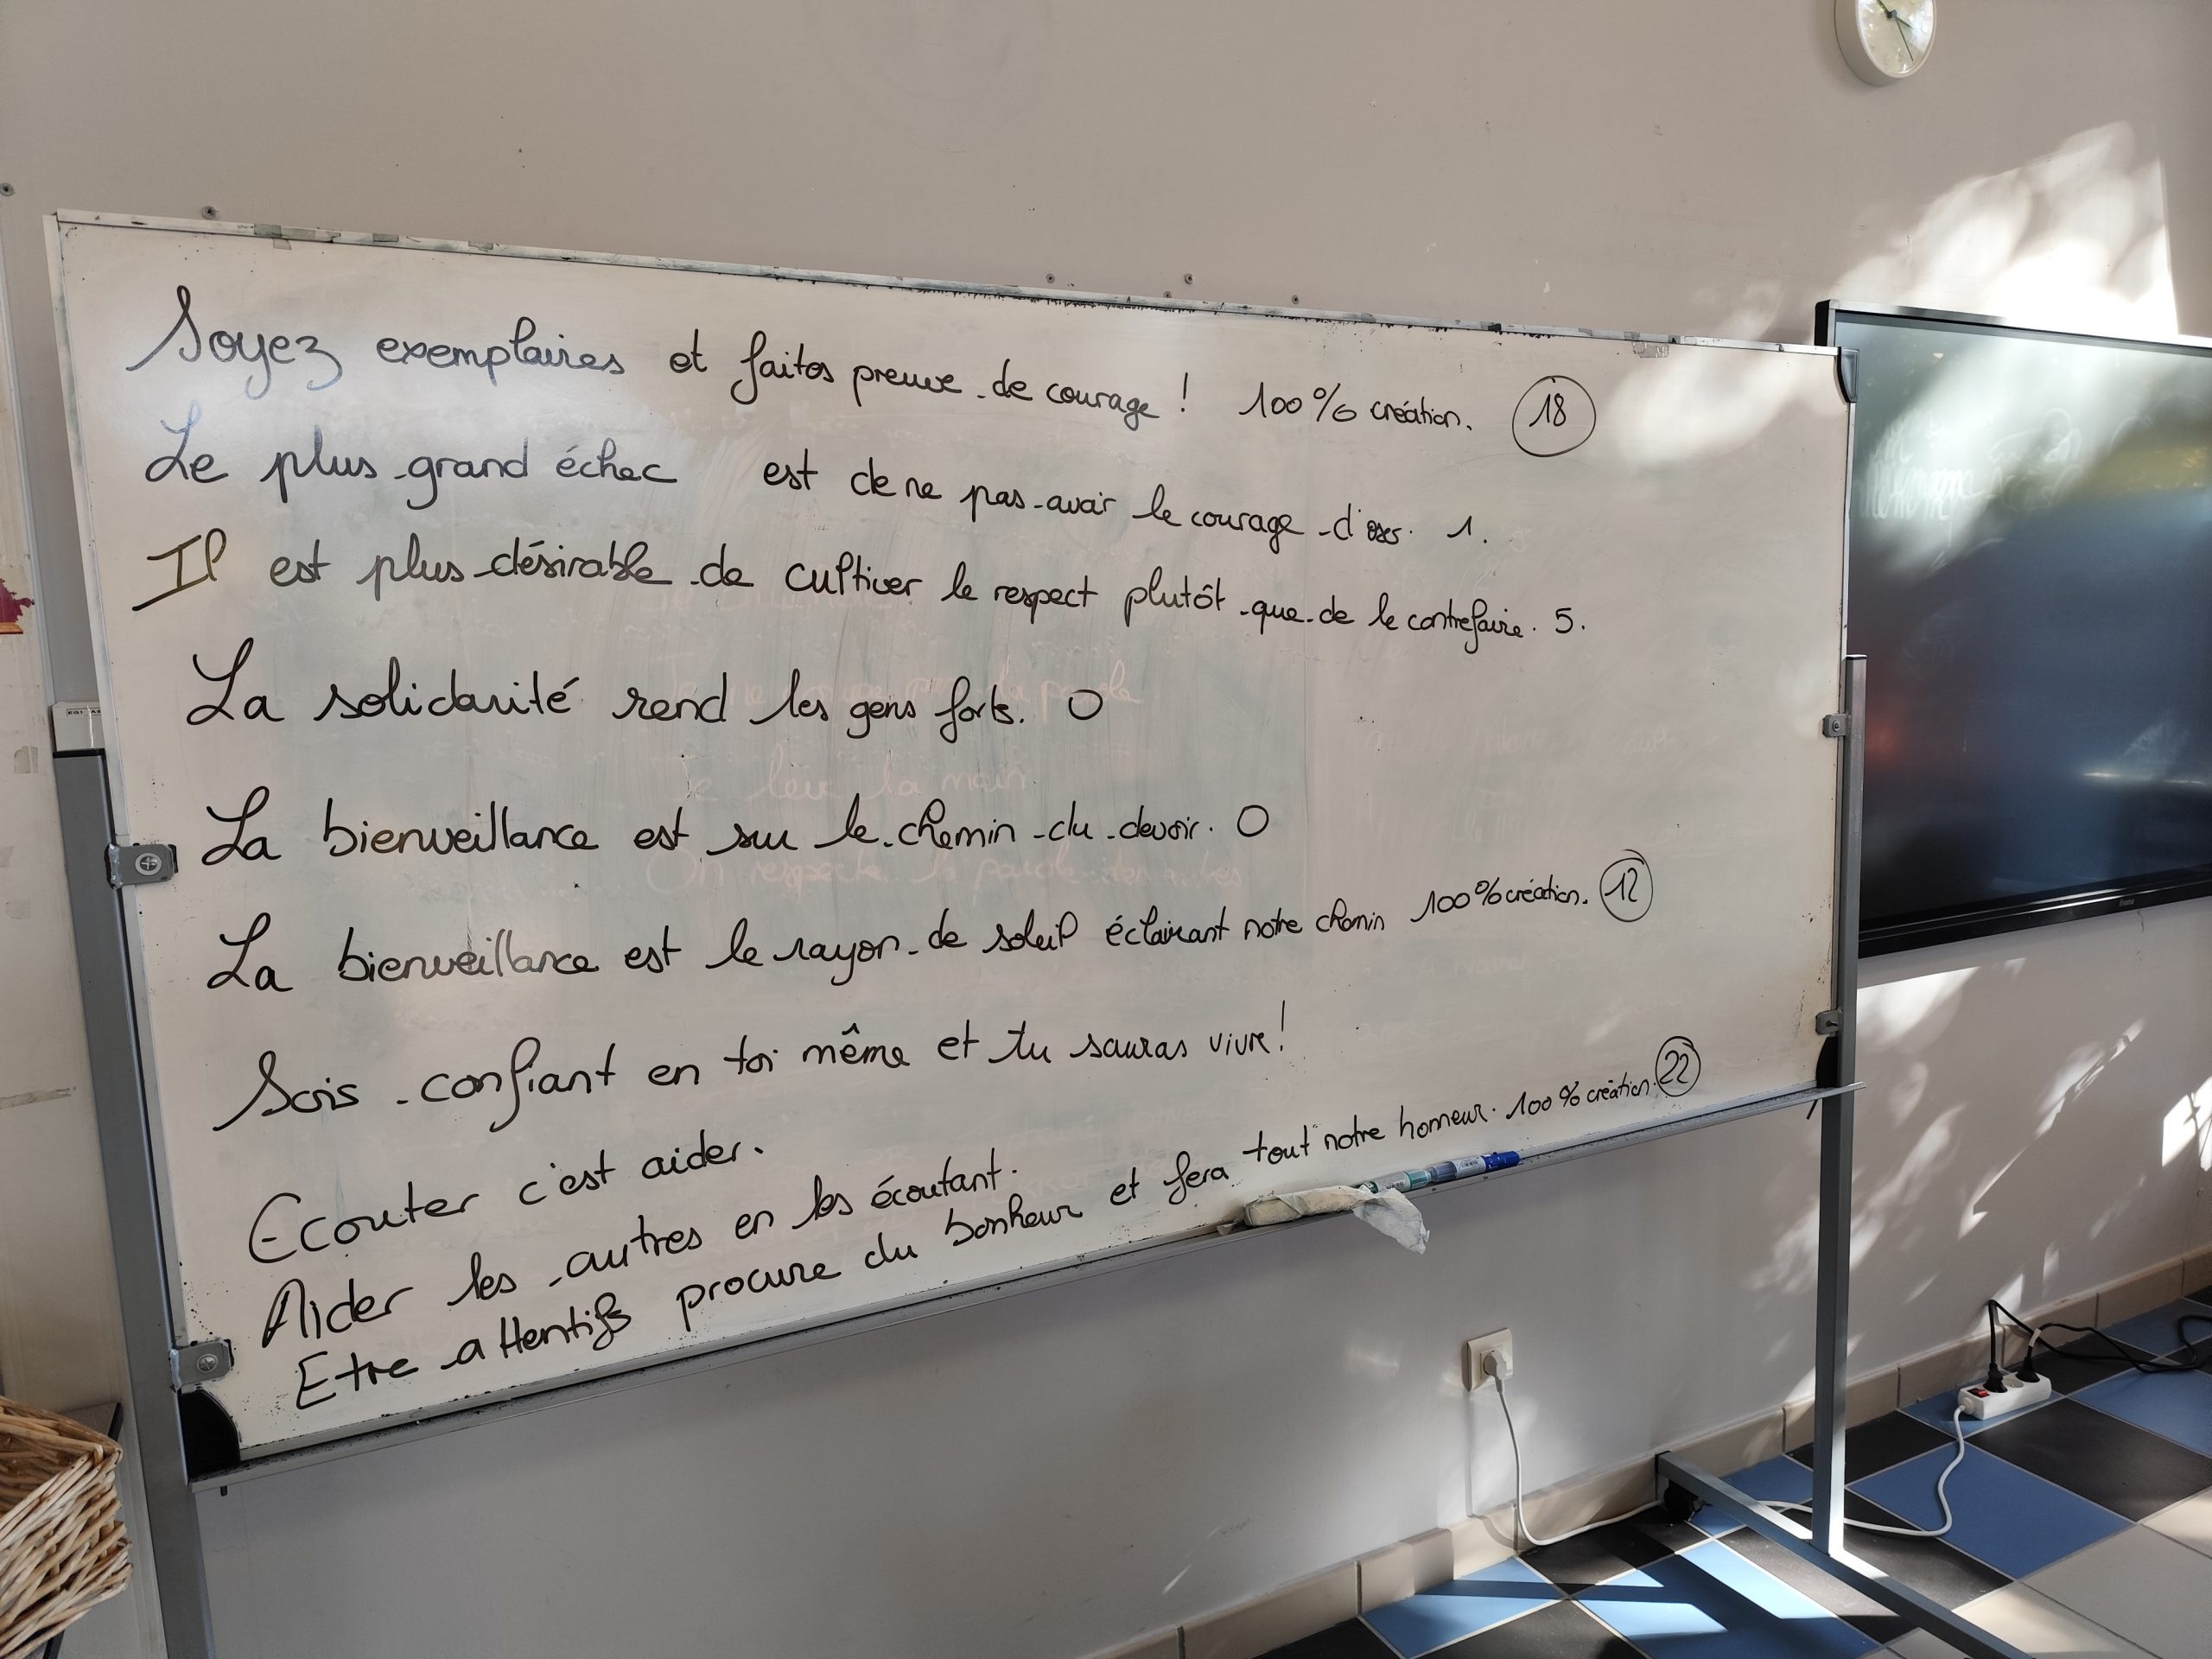 Soyez exemplaires et faites preuve de courage ! 100% création. 18
Le plus grand échec est de ne pas avoir le courage d'oser. 1.
Il est plus désirable de cultiver le respect plutôt que de le contrefaire. 5.
La solidarité rend les gens forts. 0
La bienveillance est sur le chemin du devoir. 0
La bienveillance est le rayon de soleil éclairant notre chemin 100% création. 12
Sois confiant en toi même et tu sauras vivre !
Ecouter c'est aider.
Aider les autres en les écoutant.
Etre attentifs procure du bonheur et fera tout notre honneur. 100% création. 22